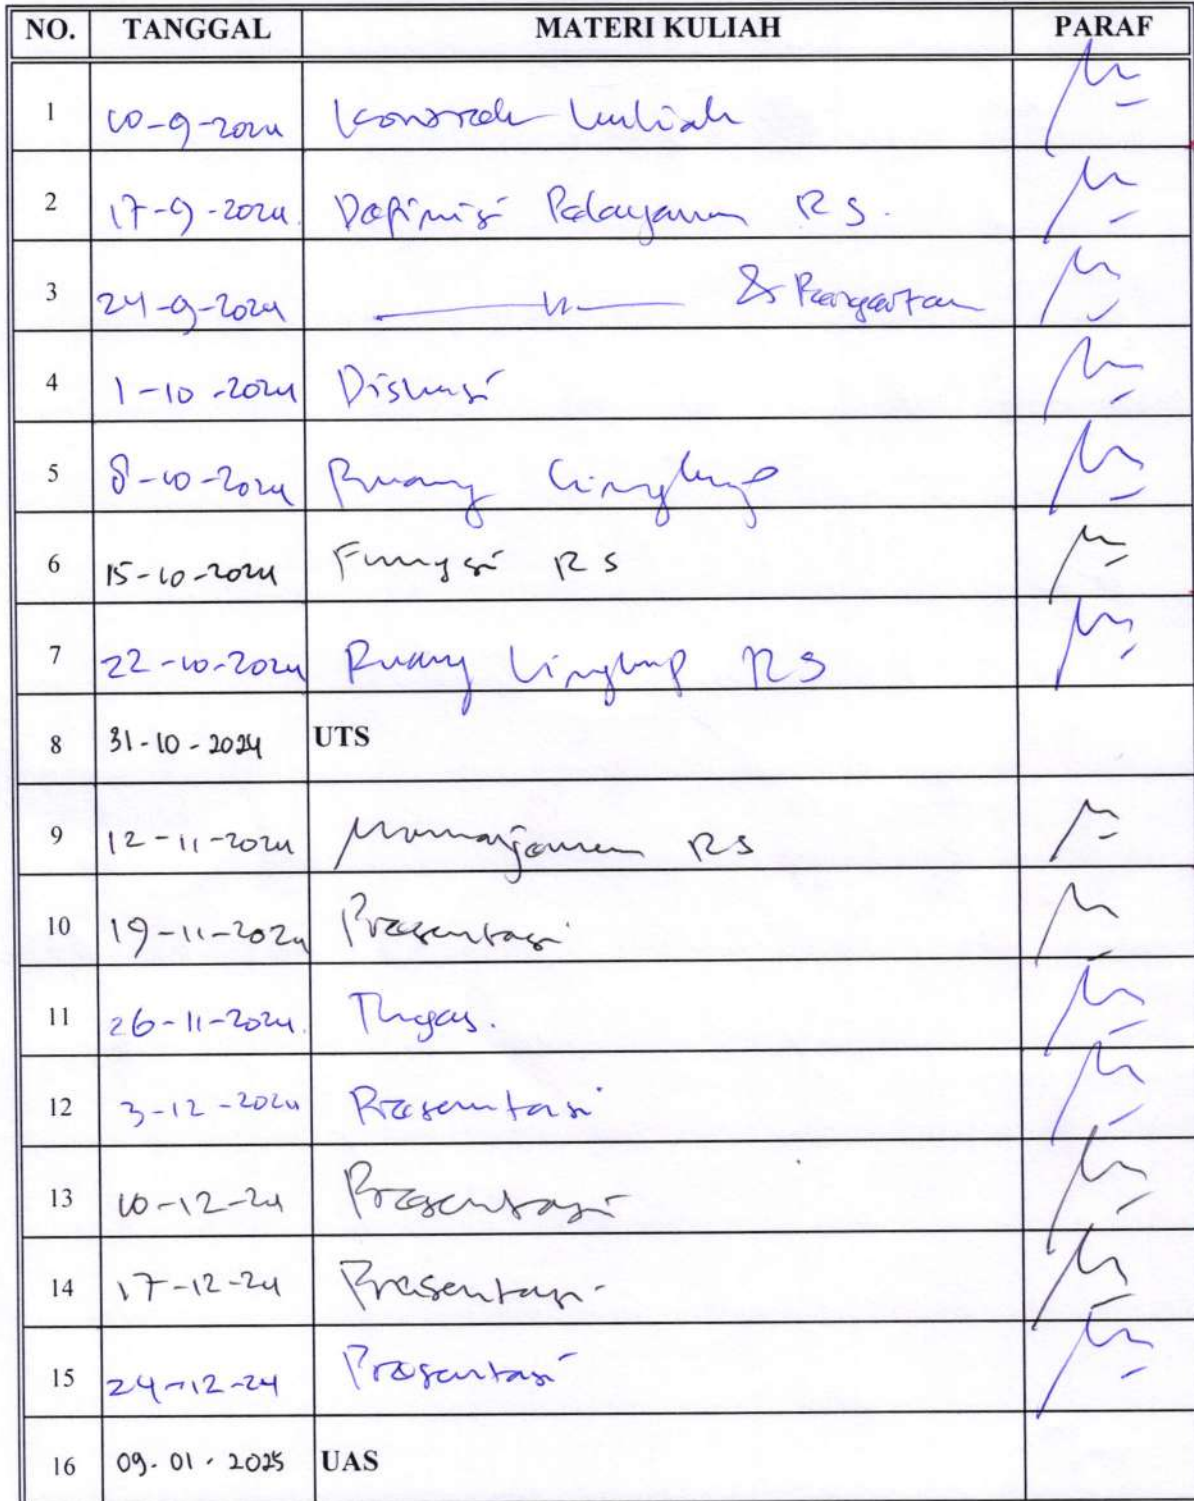 NO. TANGGAL MATERI KULIAH PARAF
1 10-9-2024 Kontrak kuliah
2 17-9-2024. Definisi Pelayanan RS.
3 24-9-2024 —— u —— &
4 1-10-2024 Diskusi
5 8-10-2024 Ruang Lingkup
6 15-10-2024 Fungsi RS
7 22-10-2024 Ruang Lingkup RS
8 31-10-2024 UTS
9 12-11-2024 Manajemen RS
10 19-11-2024 Presentasi
11 26-11-2024. Tugas.
12 3-12-2024 Presentasi
13 10-12-24 Presentasi
14 17-12-24 Presentasi
15 24-12-24 Presentasi
16 09.01.2025 UAS